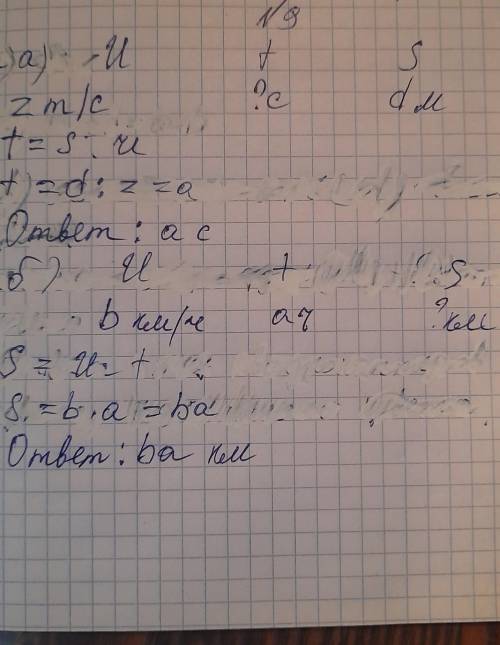 №9
а) И t S
z m/с ?с d м
t = S : и
t) = d : z = a
Ответ : а с
б) И t S
b км/ч а ч ? км
S = и · t
S = b · a = ba
Ответ : ba км